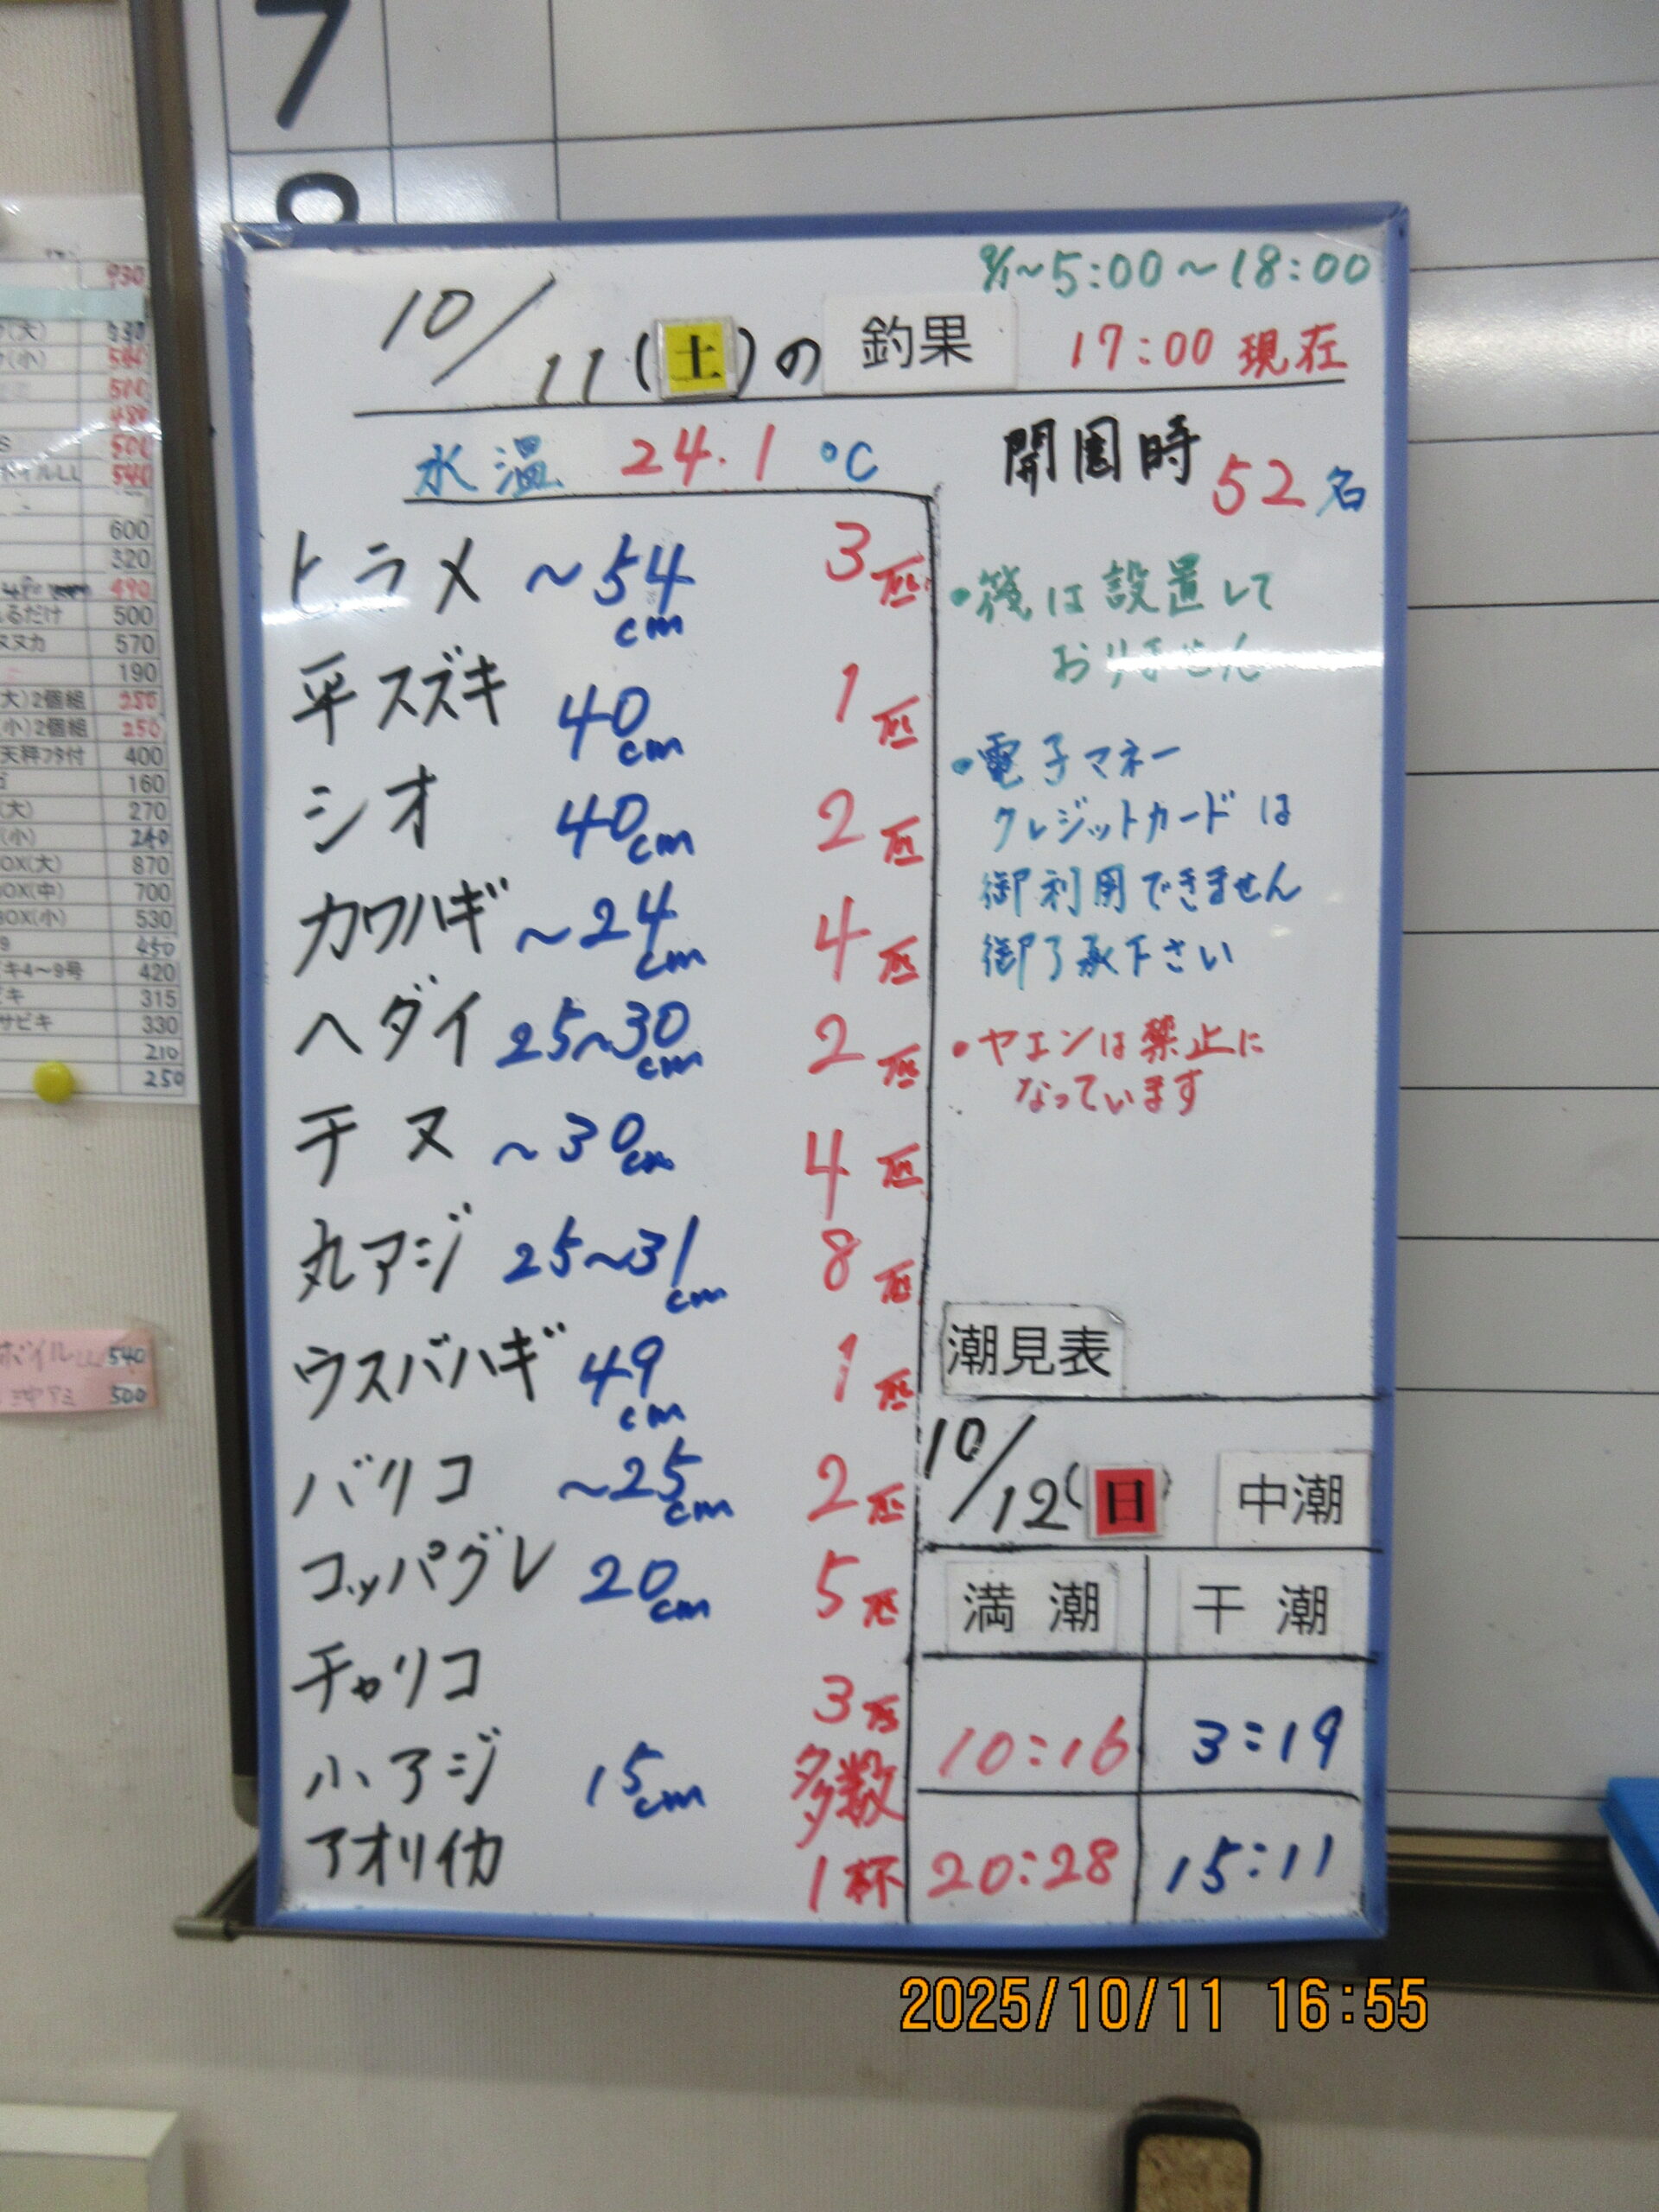 7
8
9/1～5:00～18:00
10/11(土)の 釣果
17:00 現在
水温 24.1 ℃
開園時 52名
トラメ ～54cm 3匹
平スズキ 40cm 1匹
シオ 40cm 2匹
カワハギ ～24cm 4匹
ヘダイ 25～30cm 2匹
チヌ ～30cm 4匹
丸アジ 25～31cm 8匹
ウスバハギ 49cm 1匹
バリコ ～25cm 2匹
コッパグレ 20cm 5匹
チャリコ 3匹
小アジ 15cm 多数
アオリイカ 1杯
・筏は設置して
おりません
・電子マネー
クレジットカードは
御利用できません
御了承下さい
・ヤエンは禁止に
なっています
潮見表
10/12(日) 中潮
満潮 干潮
10:16 3:19
20:28 15:11
930
(大) 530
(小) 540
500
480
S 500
ボイルLL 540
600
320
490
るだけ 500
ヌカ 570
190
大)2個組 250
(小)2個組 250
天秤ﾌﾀ付 400
160
(大) 270
(小) 240
OX(大) 870
BOX(中) 700
BOX(小) 530
450
キ4～9号 420
ビキ 315
サビキ 330
210
250
ボイルLL 540
500
2025/10/11 16:55